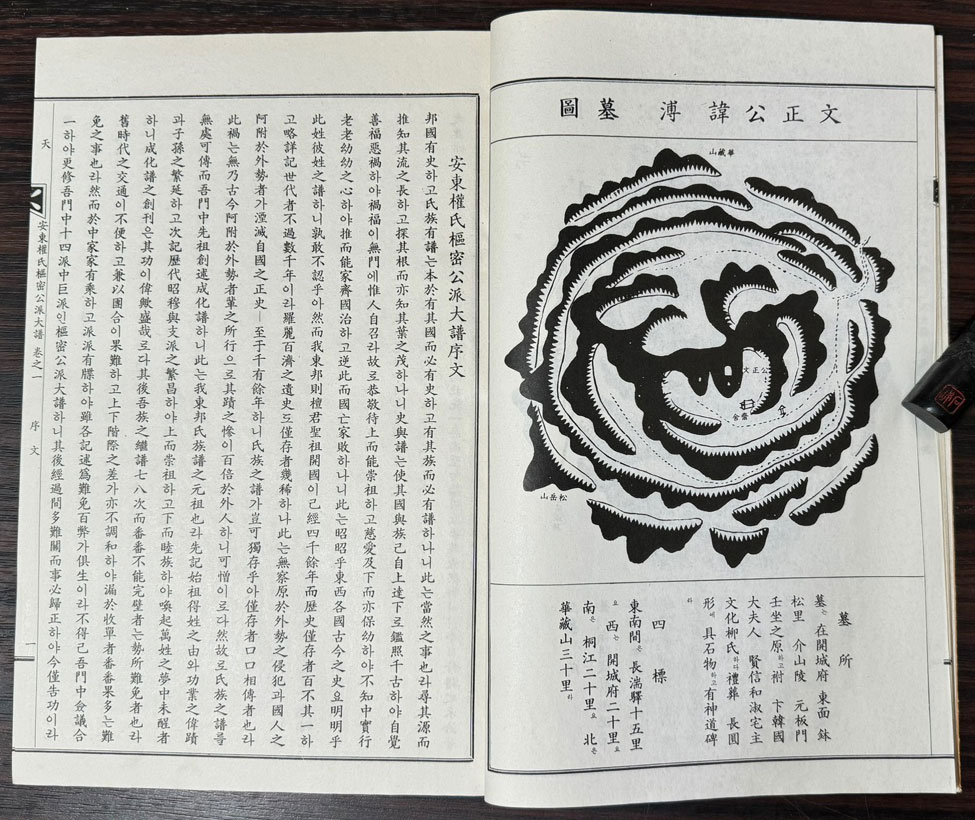 文正公諱溥 墓圖
華藏山
文正公
齋舍
松岳山
墓所
墓는 在開城府 東面 鉢
松里 介山陵 元板門
壬坐之原하고 祔 卞韓國
大夫人 賢信和淑宅主
文化柳氏하다 禮葬 長圓
形에 具石物하고 有神道碑
라
四標
東南間은 長湍驛十五里
요 西는 開城府二十里요
南은 桐江二十里요 北은
華藏山三十里라
安東權氏樞密公派大譜序文
邦國有史하고 氏族有譜는 本於有其國而必有史하고 有其族而必有譜하나니 此는 當然之事也라 尋其源而
推知其流之長하고 探其根而亦知其葉之茂하나니 史與譜는 使其國與族己自上達下로 鑑照千古하야 自覺
善福惡禍하야 禍福이 無門에 惟人自召라 故로 恭敬待上而能崇祖하고 慈愛及下而亦保幼하야 不知中實行
老老幼幼之心하야 推而能家齊國治하고 逆此而國亡家敗하나니 此는 昭昭乎東西各國古今之史요 明明乎
此姓彼姓之譜하니 孰敢不認乎아 然而我東邦則檀君聖祖開國이 已經四千餘年而歷史僅存者百不其一하
고 略詳記世代者不過數千年이라 羅麗百濟之遺史도 僅存者幾稀하나 此는 無察原於外勢之侵犯과 國人之
阿附於外勢者가 湮滅自國之正史─至于千有餘年하니 氏族之譜가 豈可獨存乎아 僅存者口口相傳者也라
此禍는 無乃古今阿附於外勢者輩之所行으로 其蹟之慘이 百倍於外人하니 可憎이로다 然故로 氏族之譜를
無處可傳而吾門中先祖創述成化譜하니 此는 我東邦氏族譜之元祖也라 先記始祖得姓之由와 功業之偉蹟
과 子孫之繁延하고 次記歷代昭穆與支派之繁昌하야 上而崇祖하고 下而睦族하야 喚起萬姓之夢中未醒者
하니 成化譜之創刊은 其功이 偉歟盛哉로다 其後吾族之繼譜七八次而番番不能完璧者는 勢所難免者也라
舊時代之交通이 不便하고 兼以團合이 果難하고 上下階際之差가 亦不調和하야 漏於收單者番番果多는 難
免之事也라 然而於中家家有乘하고 派派有牒하야 雖各記述爲難免百弊가 俱生이라 不得己吾門中僉議合
一하야 更修吾門中十四派中巨派인 樞密公派大譜하니 其後經過間多難關而事必歸正하야 今僅告功이라
天
安東權氏樞密公派大譜 卷之一
序文
一